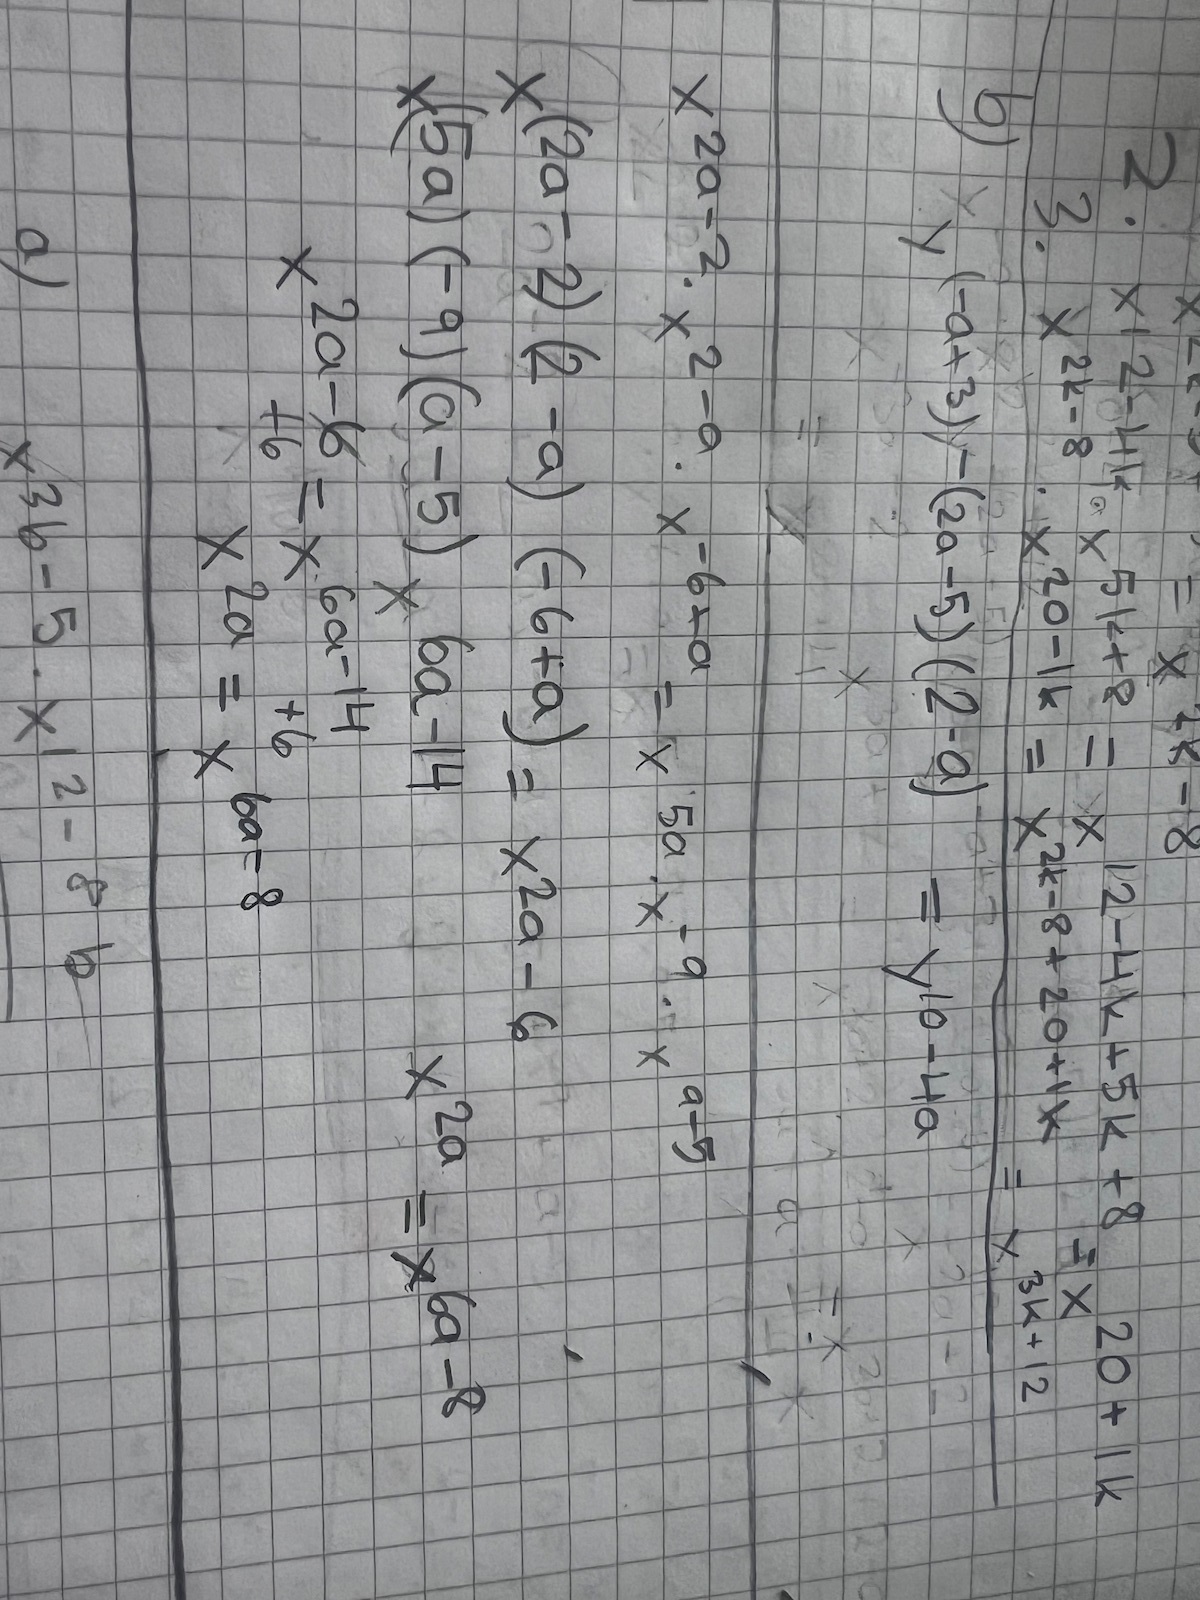 = x
2. x 12-4k · x 5k+8 = x 12-4k+5k+8 = x 20+1k
3. x 2k-8 · x 20-1k = x 2k-8+20+1k = x 3k+12
b) y (-a+3)-(2a-5)(2-a) = y 10-4a
x 2a-2 · x 2-a · x -6+a = x 5a · x -9 · x a-5
x (2a-2) (2-a) (-6+a) = x 2a-6
x (5a) (-9) (a-5) x 6a-14 x 2a = x 6a-8
x 2a-6 = x 6a-14
+6 +6
x 2a = x 6a-8
a) x 3b-5 · x 12-8b